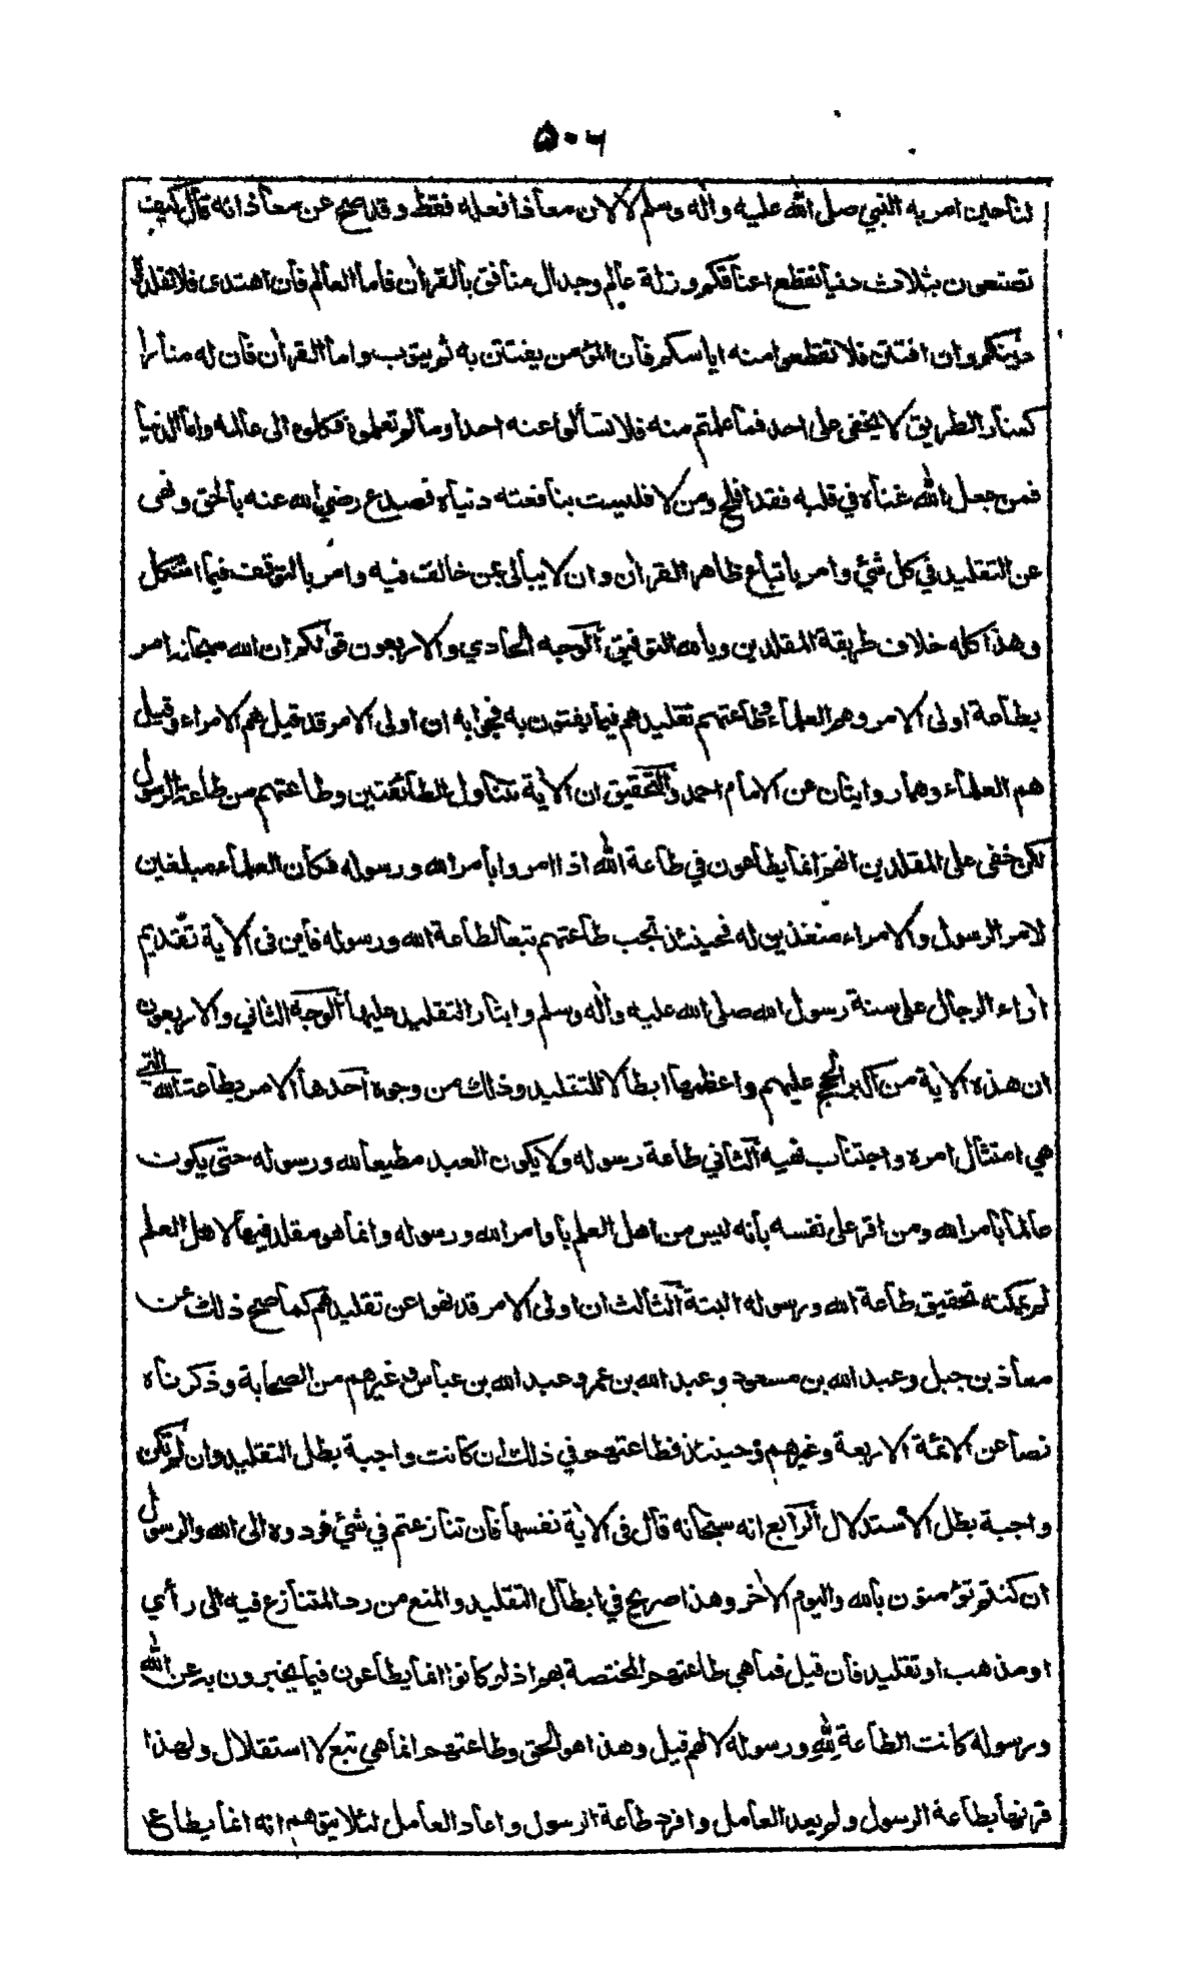 ۵۰۶
لناحين امر به النبي صلى الله عليه واله وسلم لا لان معاذا فعله فقط وقد صح عن معاذ انه قال كيف
تصنعون بثلاث دنيا تقطع اعناقكم وزلة عالم وجدال منافق بالقرأن فاما العالم فان اهتدى فلا تقلدوه
دينكم وان افتتن فلا تقطعوا منه اياسكم فان المؤمن يفتتن به ثم يتوب واما القرأن فان له منارا
كمنار الطريق لا يخفى على احد فما علمتم منه فلا تسألوا عنه احدا وما لم تعلموه فكلوه الى عالمه واما الدنيا
فمن جعل الله غناه في قلبه فقد افلح ومن لا فليست بنافعته دنياه فصدع رضي الله عنه بالحق ونهى
عن التقليد في كل شئ وامر باتباع ظاهر القرأن وان لا يبالى بمن خالف فيه وامر بالتوقف فيما اشكل
وهذا كله خلاف طريقة المقلدين وبالله التوفيق الوجه الحادي والاربعون قولكم ان الله سبحانه امر
بطاعة اولى الامر وهم العلماء وطاعتهم تقليدهم فيما يفتون به فجوابه ان اولى الامر قد قيل هم الامراء وقيل
هم العلماء وهما روايتان عن الامام احمد والتحقيق ان الأية تتناول الطائفتين وطاعتهم من طاعة الرسول
لكن خفى على المقلدين انهم انما يطاعون في طاعة الله اذا امروا بامر الله ورسوله فكان العلماء مبلغين
لامر الرسول والامراء منفذين له فحينئذ تجب طاعتهم تبعا لطاعة الله ورسوله فأين في الأية تقديم
أراء الرجال على سنة رسول الله صلى الله عليه وأله وسلم وايثار التقليد عليها الوجه الثاني والاربعون
ان هذه الأية من اكبر الحجج عليهم واعظمها ابطالا للتقليد وذلك من وجوه احدها الامر بطاعة الله التي
هي امتثال امره واجتناب نهيه الثاني طاعة رسوله ولا يكون العبد مطيعا لله ورسوله حتى يكون
عالما بامر الله ومن اقر على نفسه بانه ليس من اهل العلم باوامر الله ورسوله وانما هو مقلد فيها لاهل العلم
لم يمكنه تحقيق طاعة الله ورسوله البتة الثالث ان اولى الامر قد نهوا عن تقليدهم كما صح ذلك عن
معاذ بن جبل وعبد الله بن مسعود وعبد الله بن عمر وعبد الله بن عباس وغيرهم من الصحابة وذكرناه
نصا عن الائمة الاربعة وغيرهم وحينئذ فطاعتهم في ذلك ان كانت واجبة بطل التقليد وان لم تكن
واجبة بطل الاستدلال الرابع انه سبحانه قال في الأية نفسها فان تنازعتم في شئ فردوه الى الله والرسول
ان كنتم تؤمنون بالله واليوم الأخر وهذا صريح في ابطال التقليد والمنع من رد المتنازع فيه الى رأي
او مذهب او تقليد فان قيل فما هي طاعتهم المختصة بهم اذ لو كانوا انما يطاعون فيما يخبرون به عن الله
ورسوله كانت الطاعة لله ورسوله لا لهم قيل وهذا هو الحق وطاعتهم انما هي تبع لا استقلال ولهذا
قرنها بطاعة الرسول ولم يعد العامل وافرد طاعة الرسول واعاد العامل لئلا يتوهم انه انما يطاع